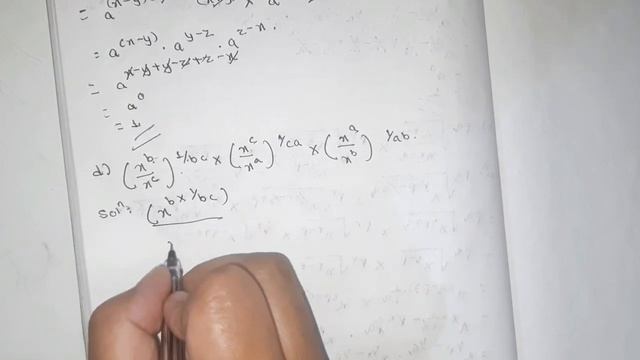 = a^(x-y) · a^y-z · a^z-x.
= a^x-y+y-z+z-x
= a^0
= 1
d) (x^b/x^c)^1/bc × (x^c/x^a)^1/ca × (x^a/x^b)^1/ab.
Solⁿ: (x^b×1/bc)